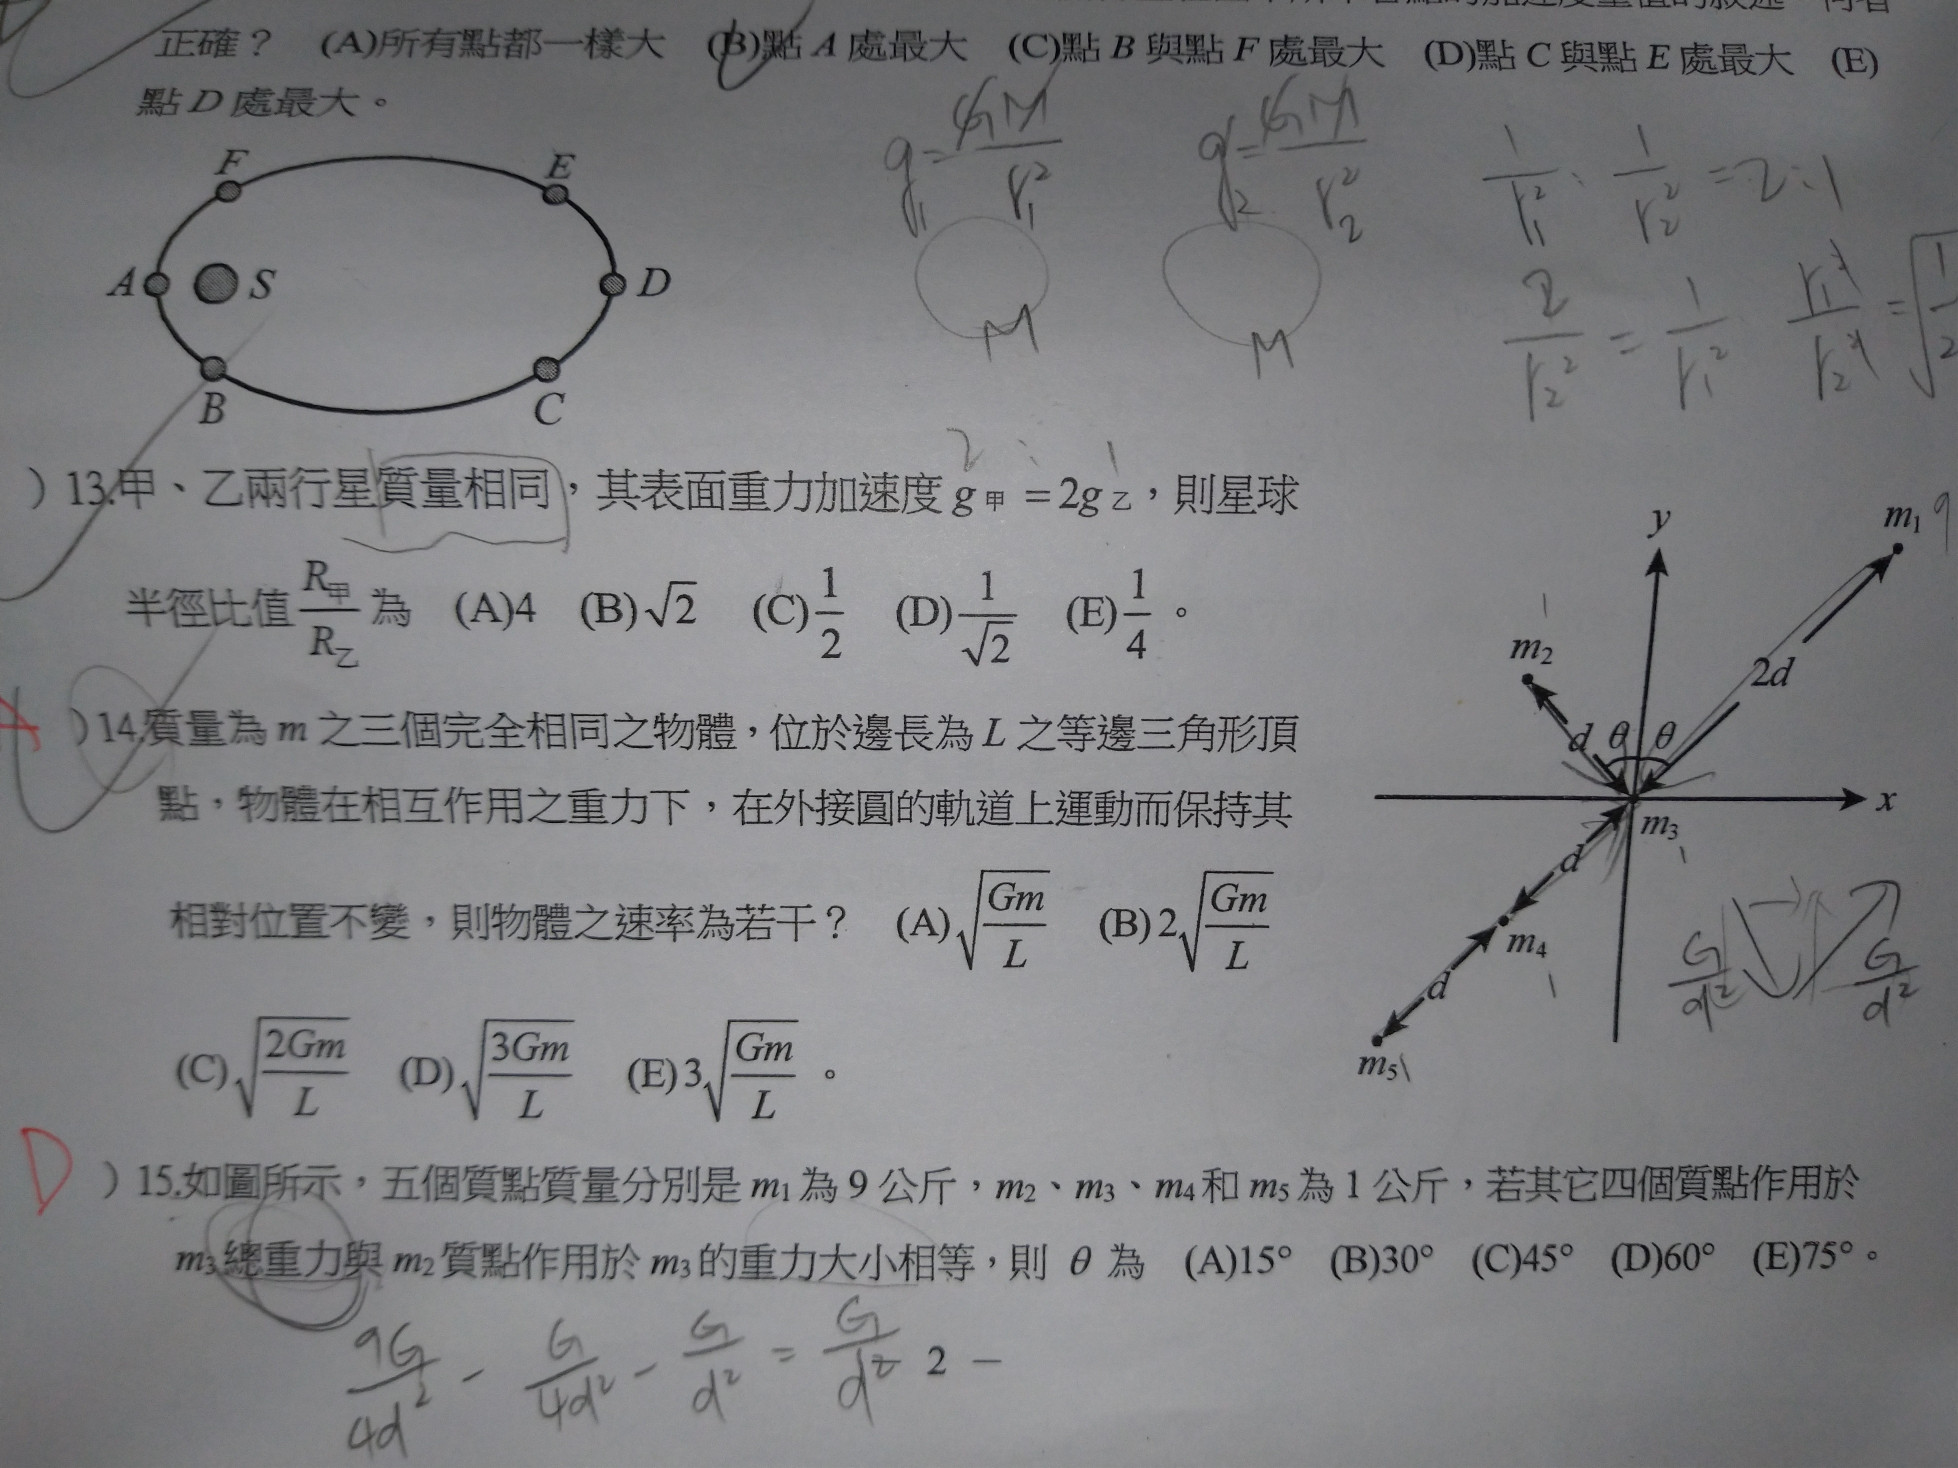 正確？ (A)所有點都一樣大 (B)點 A 處最大 (C)點 B 與點 F 處最大 (D)點 C 與點 E 處最大 (E)
點 D 處最大。
F E
A S D
B C
g₁=GM/r₁² g₂=GM/r₂² 1/r₁² : 1/r₂² = 2:1
M M
2/r₂² = 1/r₁² r₁²/r₂² = √1/2
2 : 1
)13.甲、乙兩行星質量相同，其表面重力加速度 g甲 = 2g乙，則星球
半徑比值 R甲/R乙 為 (A)4 (B)√2 (C)1/2 (D)1/√2 (E)1/4。
A )14.質量為 m 之三個完全相同之物體，位於邊長為 L 之等邊三角形頂
點，物體在相互作用之重力下，在外接圓的軌道上運動而保持其
相對位置不變，則物體之速率為若干？ (A)√Gm/L (B)2√Gm/L
(C)√2Gm/L (D)√3Gm/L (E)3√Gm/L。
y m₁ 9
1
m₂ 2d
d θ θ
x
m₃ 1
d
m₄ 1
d
m₅ 1
G/d² G/d²
D )15.如圖所示，五個質點質量分別是 m₁ 為 9 公斤，m₂、m₃、m₄和 m₅ 為 1 公斤，若其它四個質點作用於
m₃ 總重力與 m₂ 質點作用於 m₃ 的重力大小相等，則 θ 為 (A)15° (B)30° (C)45° (D)60° (E)75°。
9G/4d² - G/4d² - G/d² = G/d²
2 －